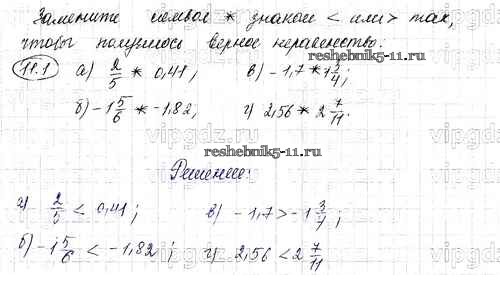 Замените символ * знаком < или > так,
чтобы получилось верное неравенство.
11.1 а) 2/5 * 0,41; в) -1,7 * 1 3/4;
б) -1 5/6 * -1,82; г) 2,56 * 2 7/11.
reshebnik5-11.ru
reshebnik5-11.ru
Решение:
а) 2/5 < 0,41; в) -1,7 > -1 3/4;
б) -1 5/6 < -1,82; г) 2,56 < 2 7/11